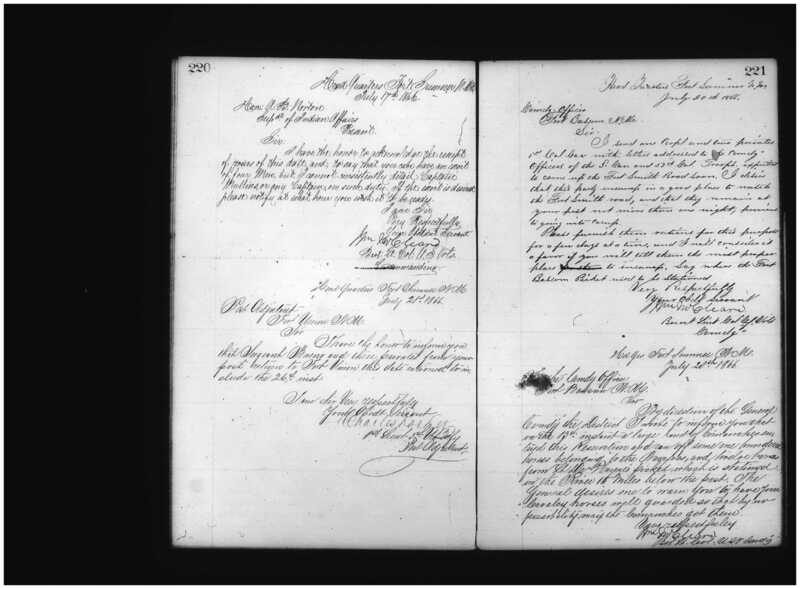 220
Head Quarters Fort Sumner N.M.
July 17th 1866
Hon. A. B. Norton
Supt. of Indian Affairs
Present.
Sir
I have the honor to acknowledge the receipt
of yours of this date, and to say that you can have an escort
of four Men, but I cannot consistently detail Captain
or any Captain on such duty. If the escort is desired
please notify at what hour you wish it to be ready.
I am Sir
Very Respectfully
Your Obedient Servant
Wm McCleave
Bvt Lt Col U.S. Vols
Commanding
Head Quarters Fort Sumner N.M.
July 21st 1866
Post Adjutant
Fort Union N.M.
Sir
I have the honor to inform you
that Sergeant and three privates from your
post, returns to Fort Union this date rationed to
include the 26th inst.
I am Sir Very respectfully
Your Obdt Servant
Charles
1st Lieut
Post Adjutant
221
Head Quarters Fort Sumner N.M.
July 20th 1866.
Comdg Officer
Fort Bascom N.M.
Sir:
I send one Corpl and two privates
1st Cal Cav with letter addressed to Comdg
Officer of the and Troops, expected
to come up the Fort Smith Road soon. I desire
that this party encamp in a good place to watch
the Fort Smith road, and that they remain at
your post not more than one night, previous
to going into camp.
Please furnish them rations for this purpose
for a few days at a time, and I will consider it
a favor if you will tell them the most proper
place to encamp, Say where the Fort
Bascom Picket used to be stationed
Very Respectfully
Your Obdt Servant
Wm McCleave
Brevet Lieut Col U.S. Vols
Comdg
Hd Qrs Fort Sumner N.M.
July 20th 1866
To the Comdg Officer
Fort Bascom N.M.
Sir
By direction of the General
Comdg the District I write to inform you that
on the inst a large band of Comanches
this Reservation and ran off some one hundred
horses belonging to the Navajoes, and twelve
from picket which is stationed
on the River 15 miles below the post. The
General desires me to warn you to have your
Cavalry horses well guarded so that by no
possibility may the Comanches get them
Very respectfully
Wm McCleave
Bvt Lt Col U.S.V Comdg